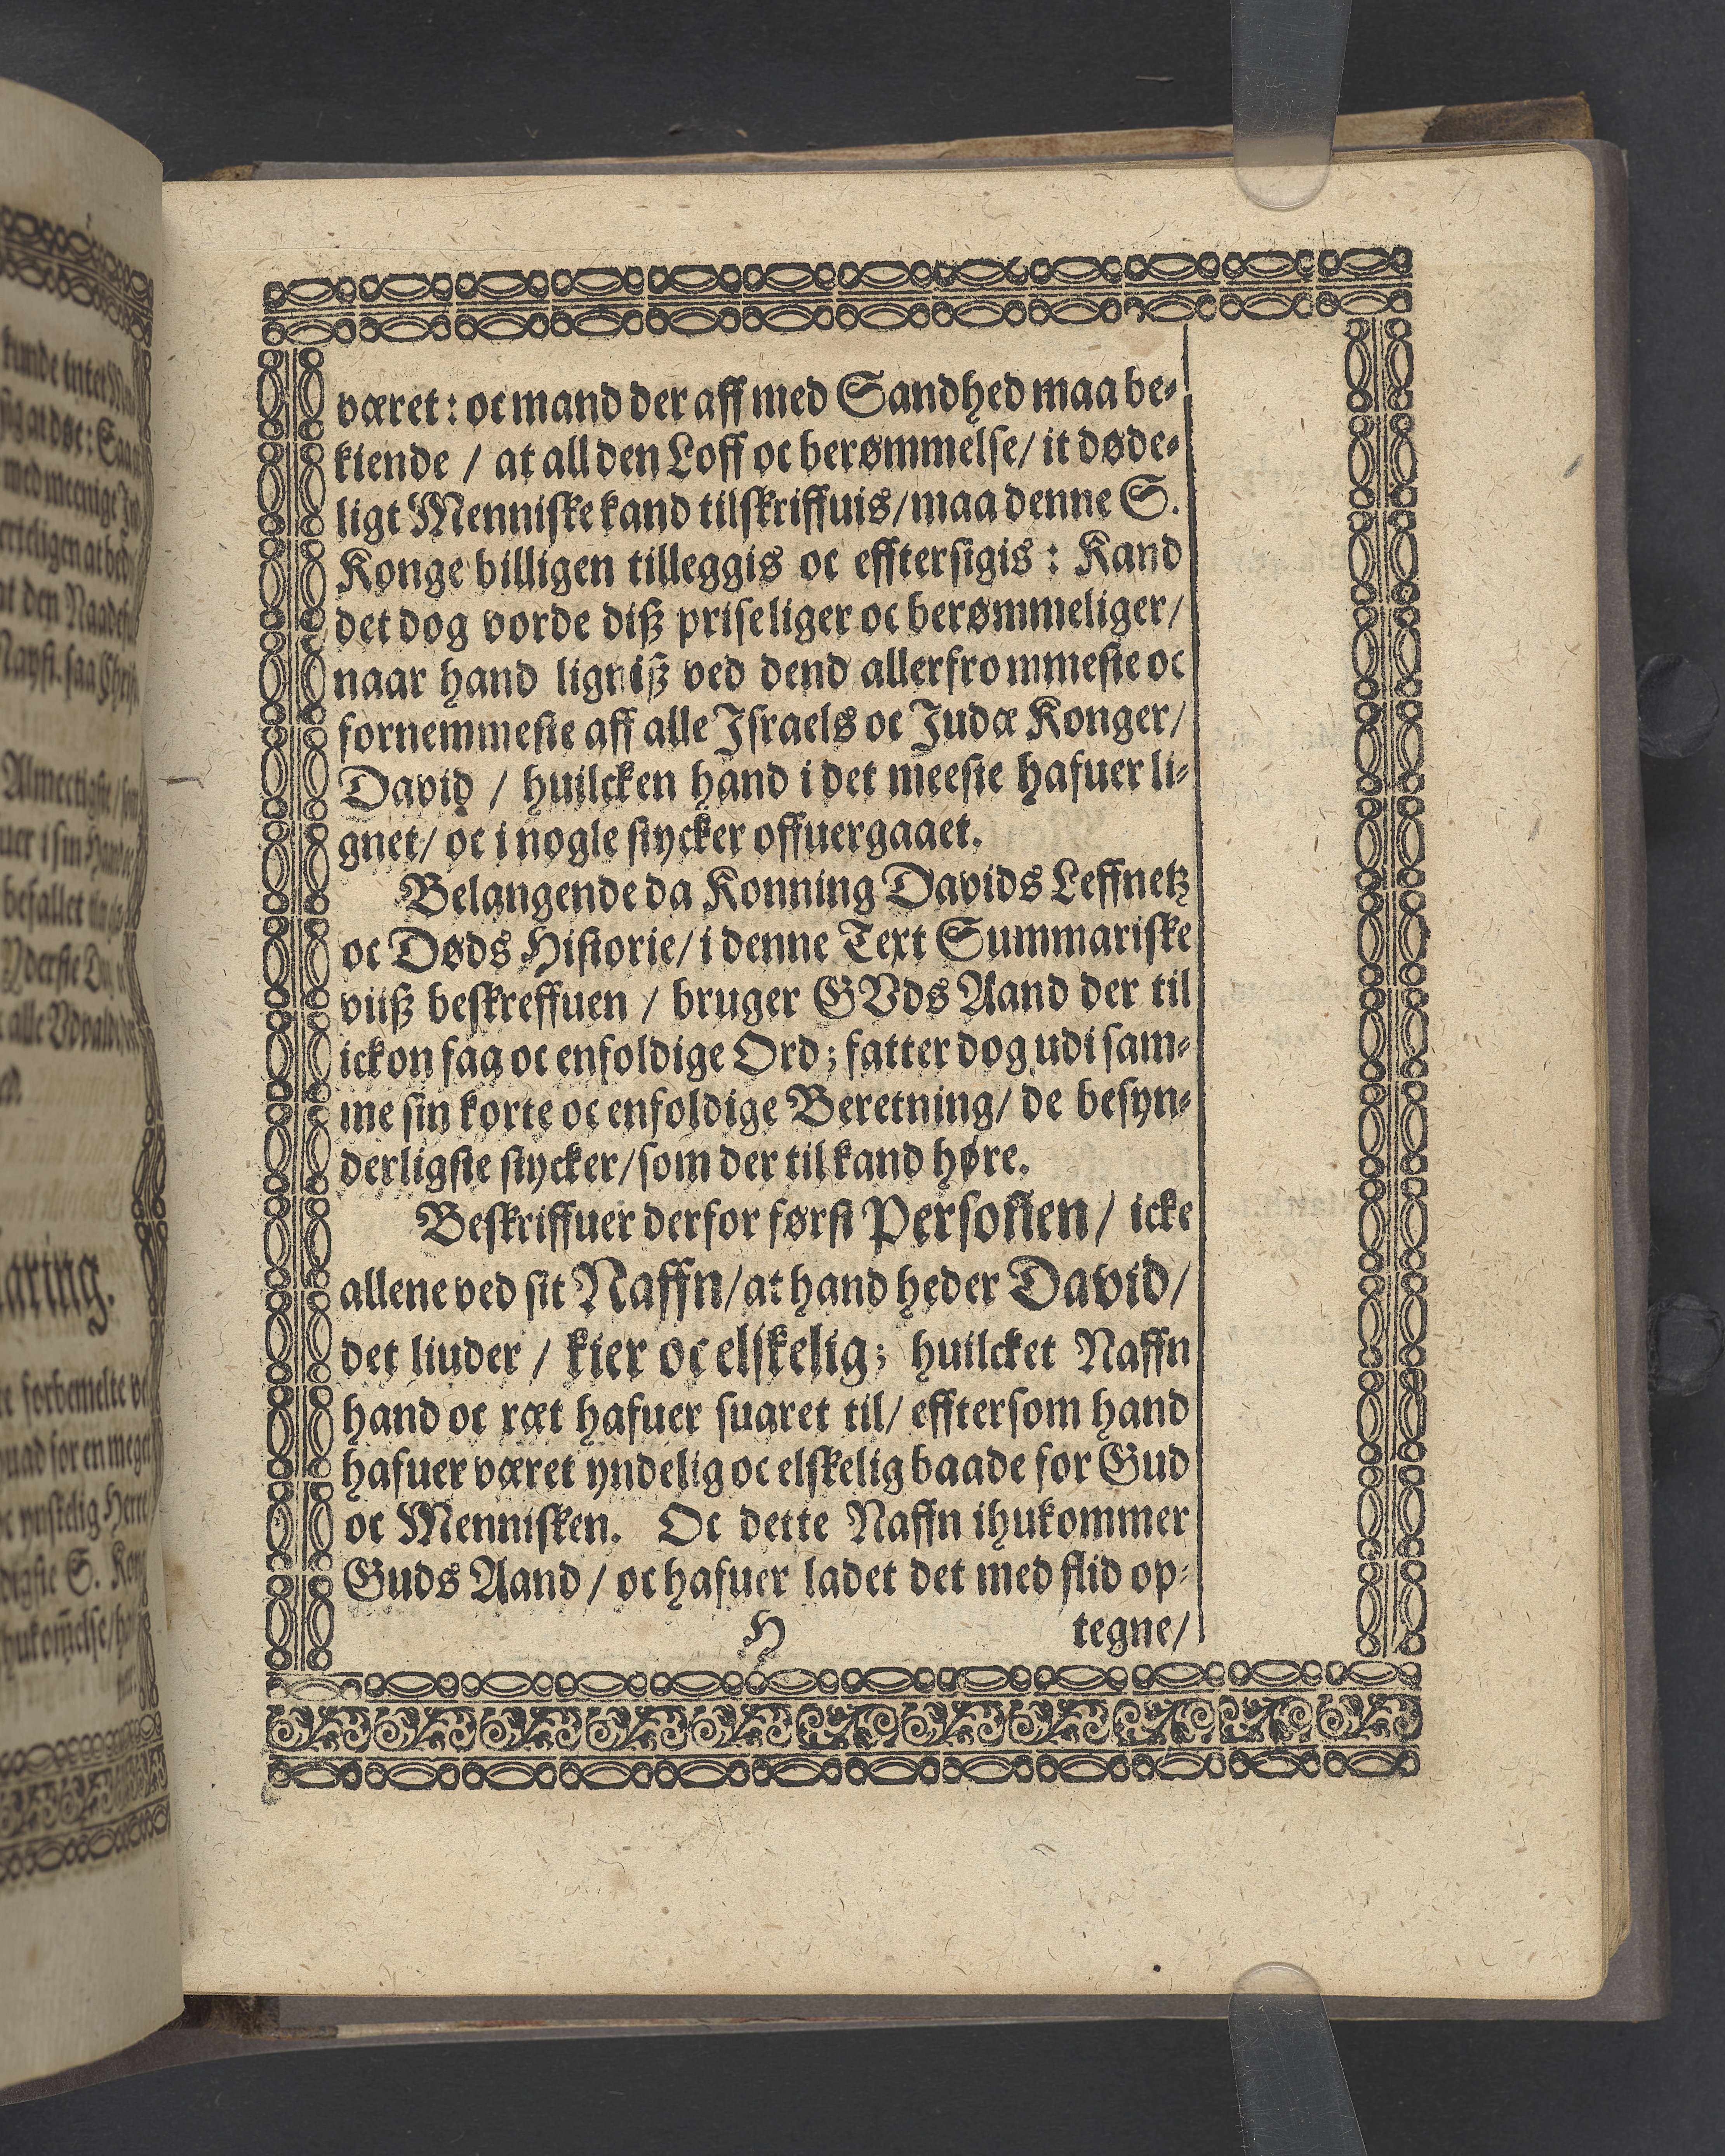 været: oc mand der aff med Sandhed maa be-
kiende / at all den Loff oc berømmelse / it døde-
ligt Menniske kand tilskriffuis / maa denne S.
Konge billigen tilleggis oc efftersigis : Kand
det dog vorde diß priseliger oc berømmeliger /
naar hand ligniß ved dend allerfrommeste oc
fornemmeste aff alle Israels oc Judæ Konger /
David / huilcken hand i det meeste hafuer li-
gnet / oc i nogle stycker offuergaaet.
Belangende da Konning Davids Leffnetz
oc Døds Historie / i denne Text Summariske
viiß beskreffuen / bruger GVds Aand der til
ickon faa oc enfoldige Ord; fatter dog udi sam-
me sin korte oc enfoldige Beretning / de besyn-
derligste stycker / som der til kand høre.
Beskriffuer derfor først Personen / icke
allene ved sit Naffn / at hand heder David /
det liuder / kier oc elskelig; huilcket Naffn
hand oc ræt hafuer suaret til / efftersom hand
hafuer været yndelig oc elskelig baade for Gud
oc Mennisken. Oc dette Naffn ihukommer
Guds Aand / oc hafuer ladet det med flid op-
H tegne /